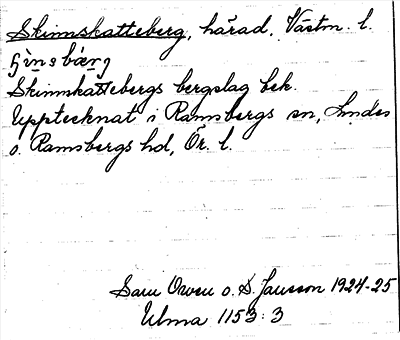 Skinnskatteberg, härad, Västm. l.
Skinnskattebergs bergslag bek.
Upptecknat i Ramsbergs sn, Lindes
o. Ramsbergs hd, Ör. l.
o. S. Jansson 1924-25
Ulma 1153:3